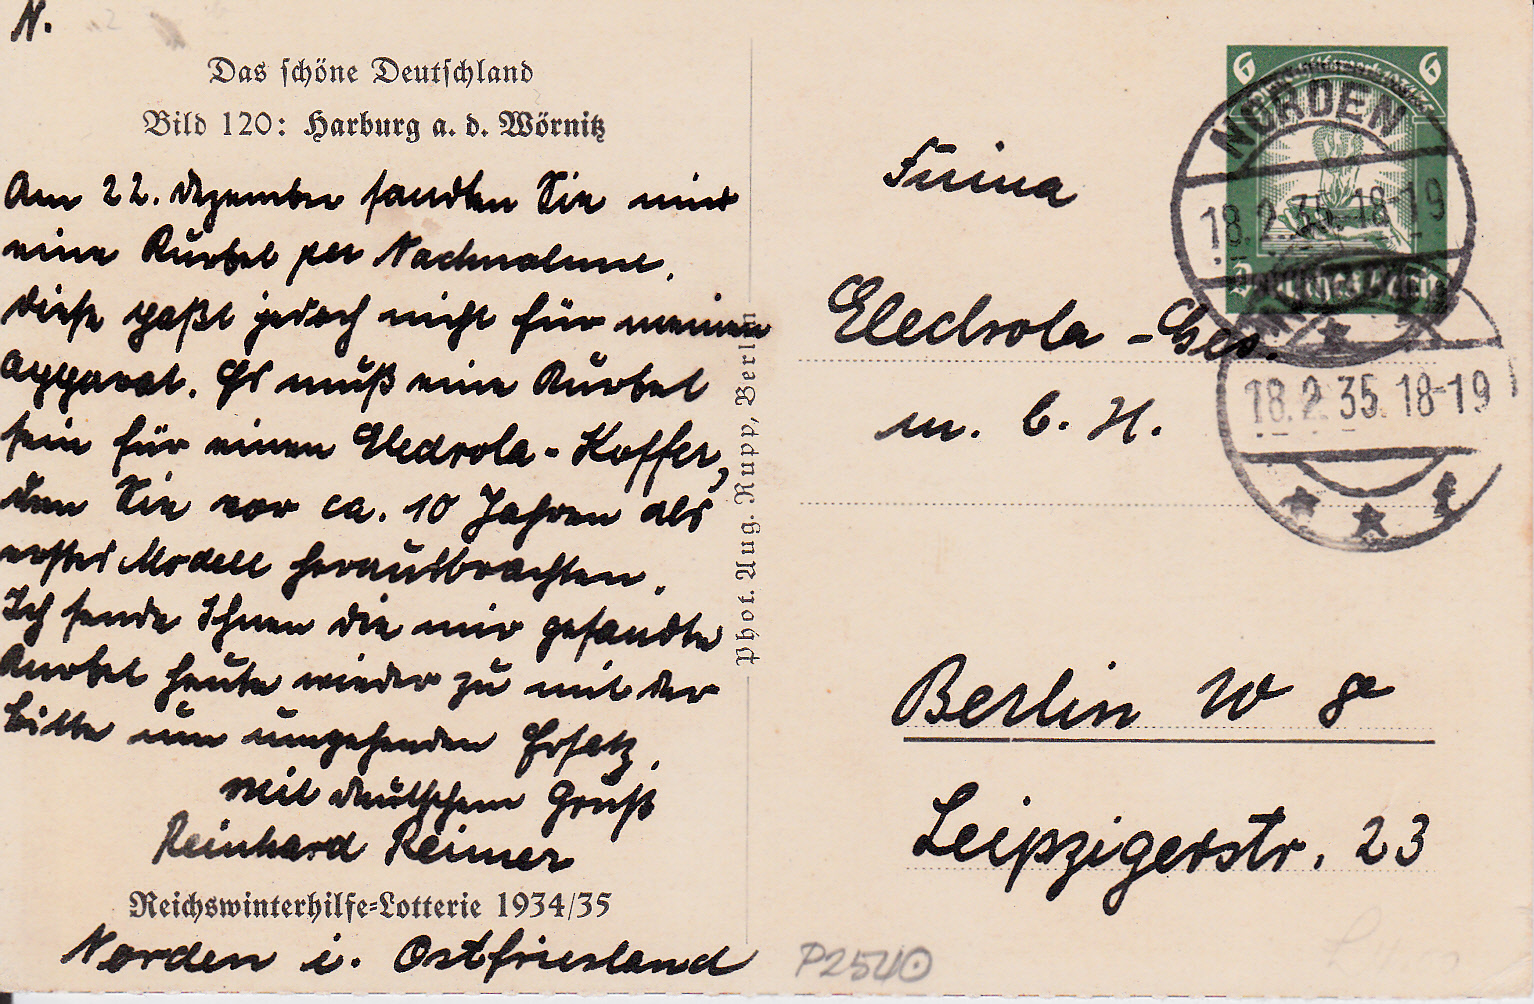 N.
Das schöne Deutschland
Bild 120: Harburg a. d. Wörnitz
Am 22. Dezember sandten Sie mir
eine Kurbel per Nachnahme.
Diese paßt jedoch nicht für meinen
Apparat. Es muß eine Kurbel
sein für einen Electrola-Koffer,
den Sie vor ca. 10 Jahren als
erstes Modell herausbrachten.
Ich sende Ihnen die mir gesandte
Kurbel heute wieder zu mit der
Bitte um umgehenden Ersatz.
Mit deutschem Gruß
Reinhard Reimer
Reichswinterhilfe-Lotterie 1934/35
Norden i. Ostfriesland
Phot. Aug. Rupp, Berlin
6 6
NORDEN
18.2.35.18-19
18.2.35.18-19
Firma
Electrola-Ges.
m. b. H.
Berlin W 8
Leipzigerstr. 23
P2540